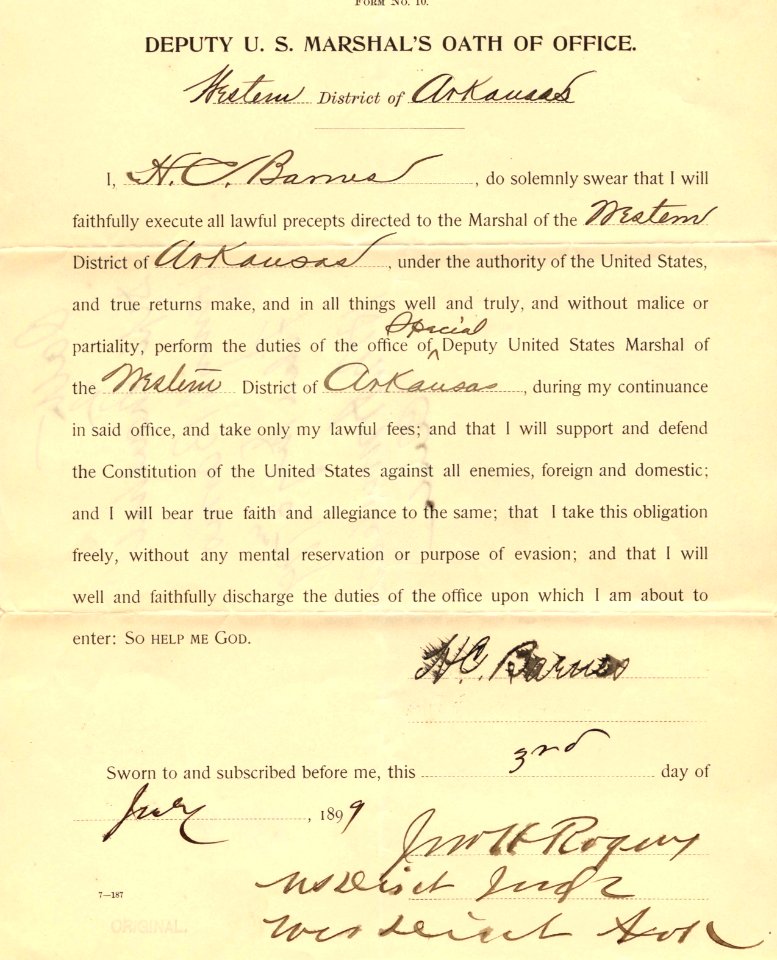 FORM NO. 10.
DEPUTY U. S. MARSHAL'S OATH OF OFFICE.
Western District of Arkansas
I, H. C. Barnes, do solemnly swear that I will
faithfully execute all lawful precepts directed to the Marshal of the Western
District of Arkansas, under the authority of the United States,
and true returns make, and in all things well and truly, and without malice or
Special
partiality, perform the duties of the office of ^ Deputy United States Marshal of
the Western District of Arkansas, during my continuance
in said office, and take only my lawful fees; and that I will support and defend
the Constitution of the United States against all enemies, foreign and domestic;
and I will bear true faith and allegiance to the same; that I take this obligation
freely, without any mental reservation or purpose of evasion; and that I will
well and faithfully discharge the duties of the office upon which I am about to
enter: SO HELP ME GOD.
H. C. Barnes
Sworn to and subscribed before me, this 3rd day of
July, 1899
Jno H Rogers
US Dist Judge
Wes Dist Ark
7—187
ORIGINAL.